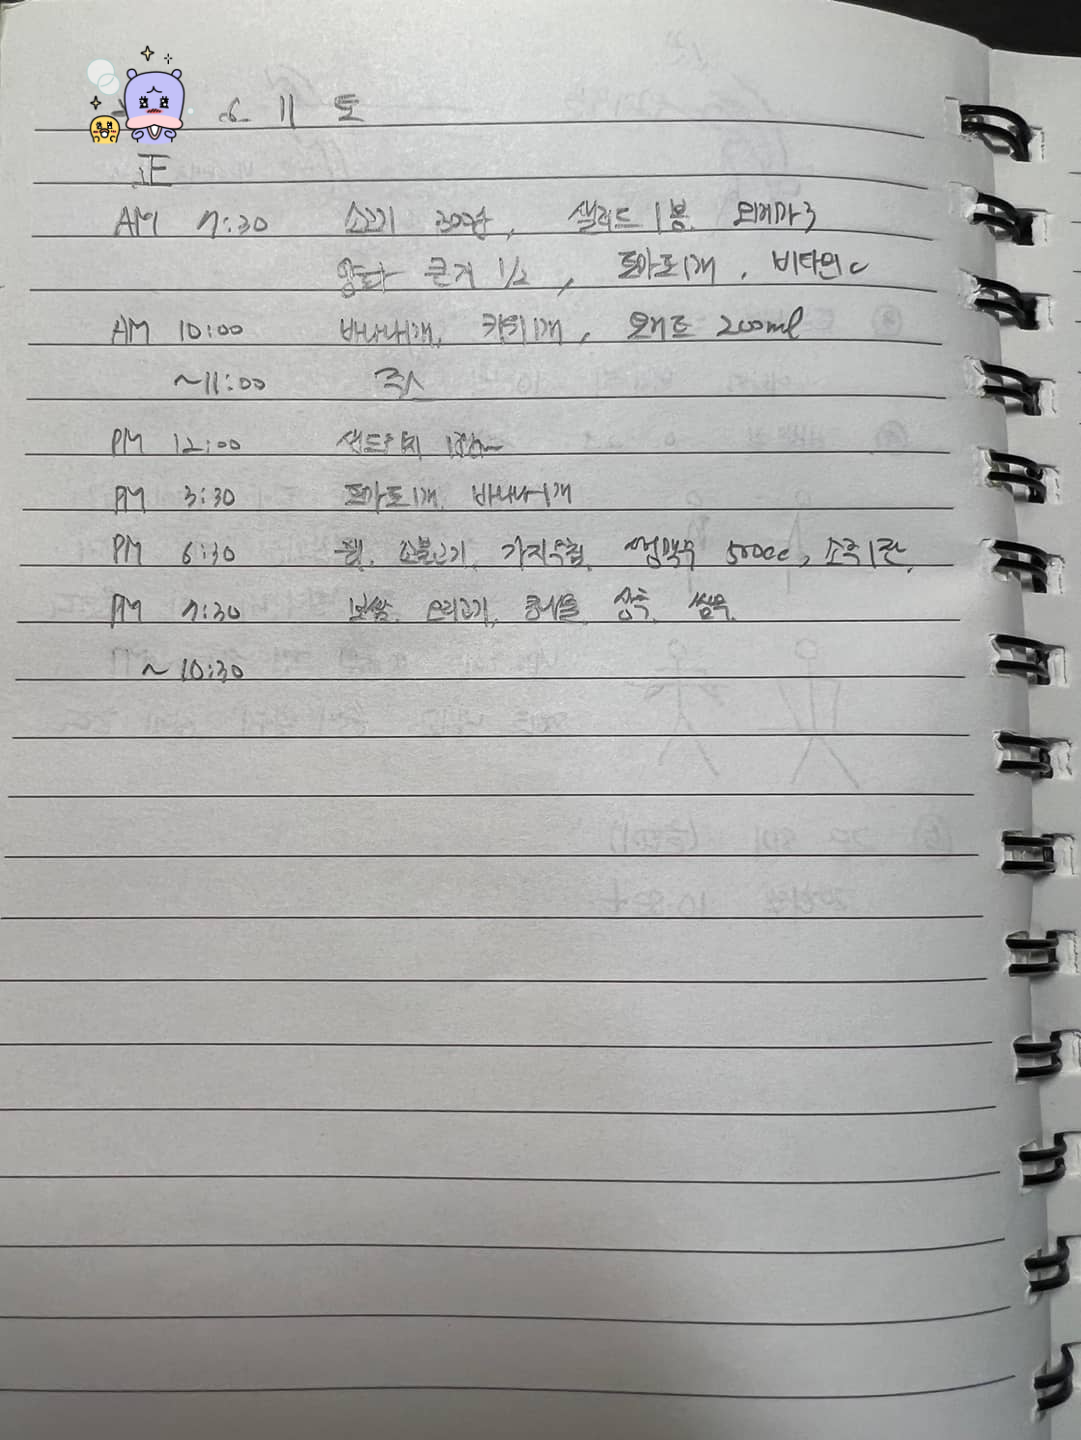 6 11 토
正
AM 7:30 소고기 300g, 샐러드 1봉. 오메가3
양파 큰거 1/2, 토마토1개, 비타민C
AM 10:00 바나나1개, 키위1개, 오매트 200ml
~11:00
PM 12:00 샌드위치
PM 3:30 토마토1개, 바나나1개
PM 6:30 소불고기, 가지무침, 생맥주 500cc, 소주1잔,
PM 7:30 보쌈, 오리고기, 콩나물, 상추, 쌈무.
~10:30